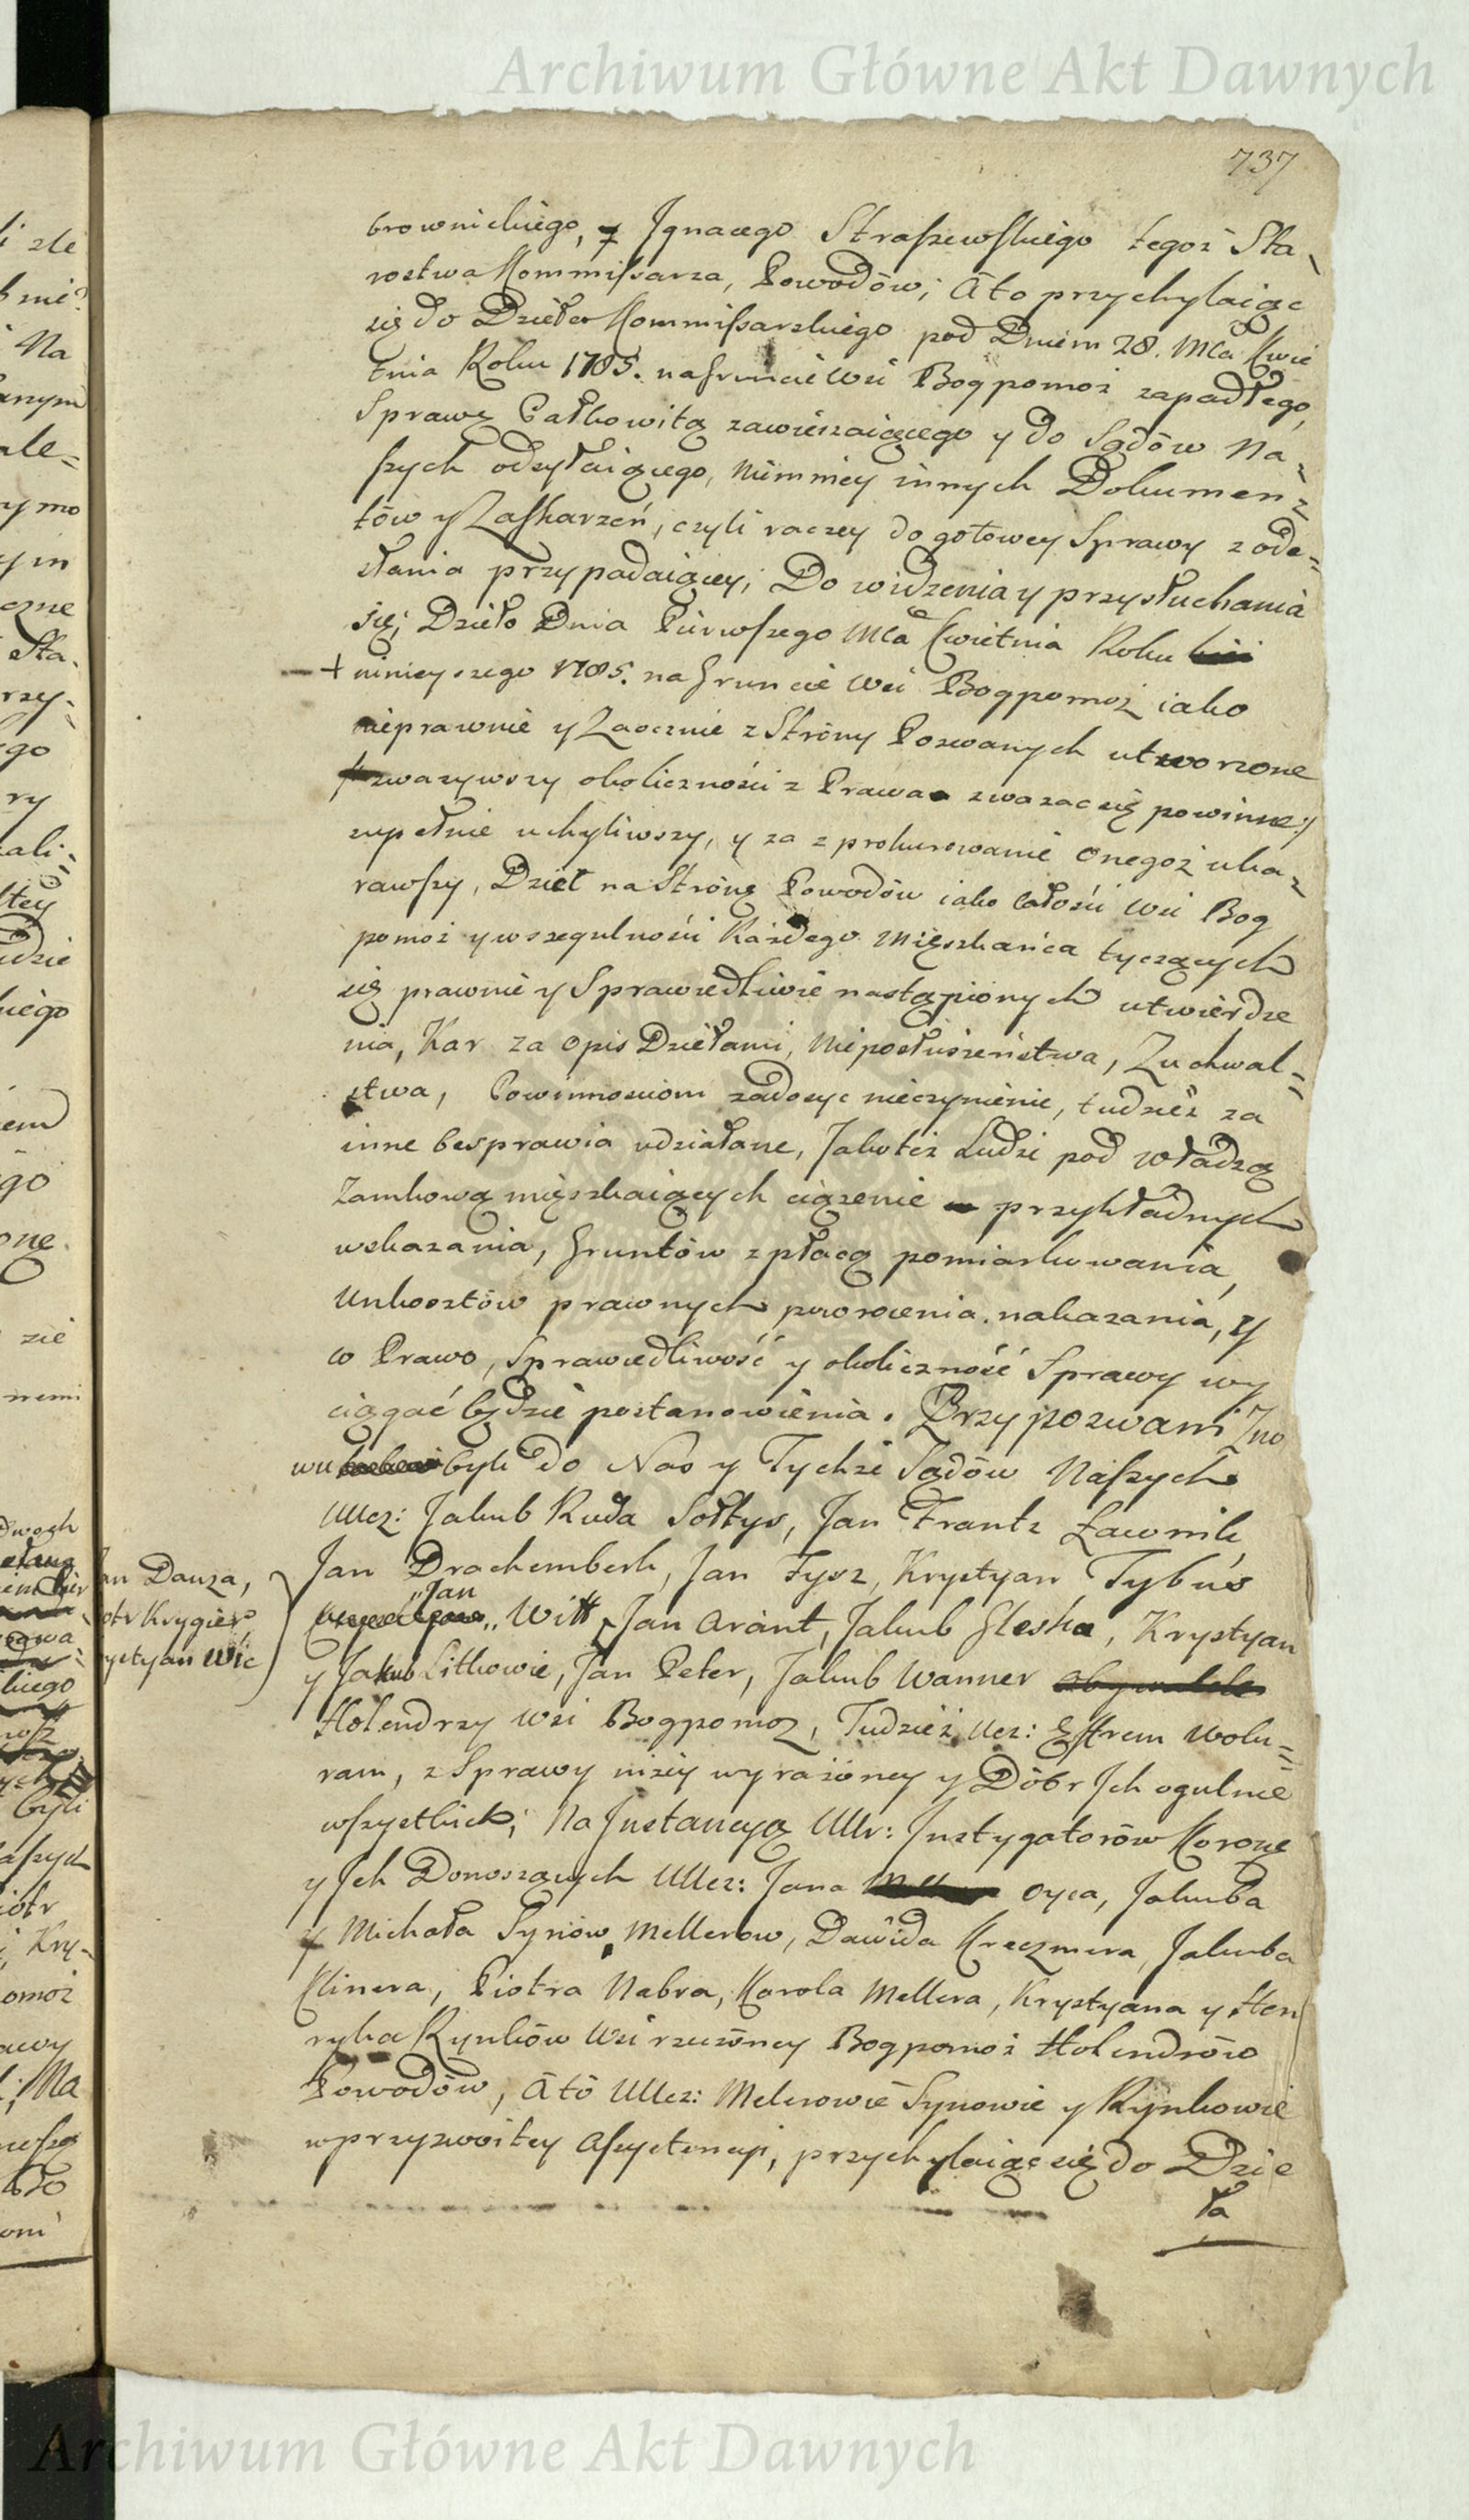 Archiwum Główne Akt Dawnych
737
brownickiego, y Jgnacego Straszewskiego tegoż Sta-
rostwa Kommissarza, Powodów; A to przychylaiąc
się do Dzieła Kommissarskiego pod Dniem 28. Mca Kwie
tnia Roku 1785. na Gruncie Wsi Bogpomoż zapadłego,
Sprawę Całkowitą zawieszaiącego y do Sądów Na-
szych odsyłaiącego, niemniey innych Dokumen-
tów y Zaskarżeń, czyli raczey do gotowey Sprawy z ode-
słania przypadaiącey; Do widzenia y przysłuchania
się; Dzieło Dnia Pierwszego Mca Kwietnia Roku
+ ninieyszego 1785. na Gruncie Wsi Bogpomoż iako
nieprawnie y Zaocznie z Strony Pozwanych utworzone
zważywszy okoliczności z Prawa zważać się powinne:/
zupełnie uchyliwszy, y za zprokurowanie onegoż uka-
rawszy, Dzieł na Stronę Powodów iako Całości Wsi Bog
pomoż y wszegulności Każdego Mięszkańca tyczących
się prawnie y Sprawiedliwie nastąpionych utwierdze
nia, Kar za opis Dziełami, Nieposłuszeństwa, Zuchwal-
stwa, Powinnosciom zadosyc nieczynienie, tudzież za
inne besprawia udziałane, Jakoteż Ludzi pod władzą
Zamkową mięszkaiących ciążenie przykładnych
wskazania, Gruntów z płacą pomiarkowania,
Unkosztów prawnych powrocenia nakazania, y
co Prawo, Sprawiedliwość y okoliczność Sprawy wy
ciągać będzie postanowienia. Przypozwani Zno
wu byli do Nas y Tychże Sądów Naszych
UUcz: Jakub Ruda Sołtys, Jan Frantz Ławnik
Jan Drachemberk, Jan Fysz, Krystyan Tybus
Jan Danza,
Piotr Krygier
Krystyan Wic
Jan
Witt Jan Arant, Jakub Gleska, Krystyan
y Jakub Litkowie, Jan Peter, Jakub Wanner
Holendrzy Wsi Bogpomoż, Tudzież Ucz: Efrem Wolu-
ram, z Sprawy niżey wyrażoney y Dóbr Jch ogulnie
wszystkich; Na Jnstancyą UUr: Jnstygatorów Korong
y Jch Donoszących UUcz: Jana Oyca, Jakuba
y Michała Synów Mellerow, Dawida Kreczmera, Jakuba
Klinera, Piotra Nabra, Karola Mellera, Krystyana y Hen
ryka Rynków Wsi rzeczoney Bogpomoż Holendrów
Powodów, A tó UUcz: Melerowie Synowie y Rynkowie
w przyzwoitey Asystencyi, przychylaiąc się do Dzie
ła
Archiwum Główne Akt Dawnych